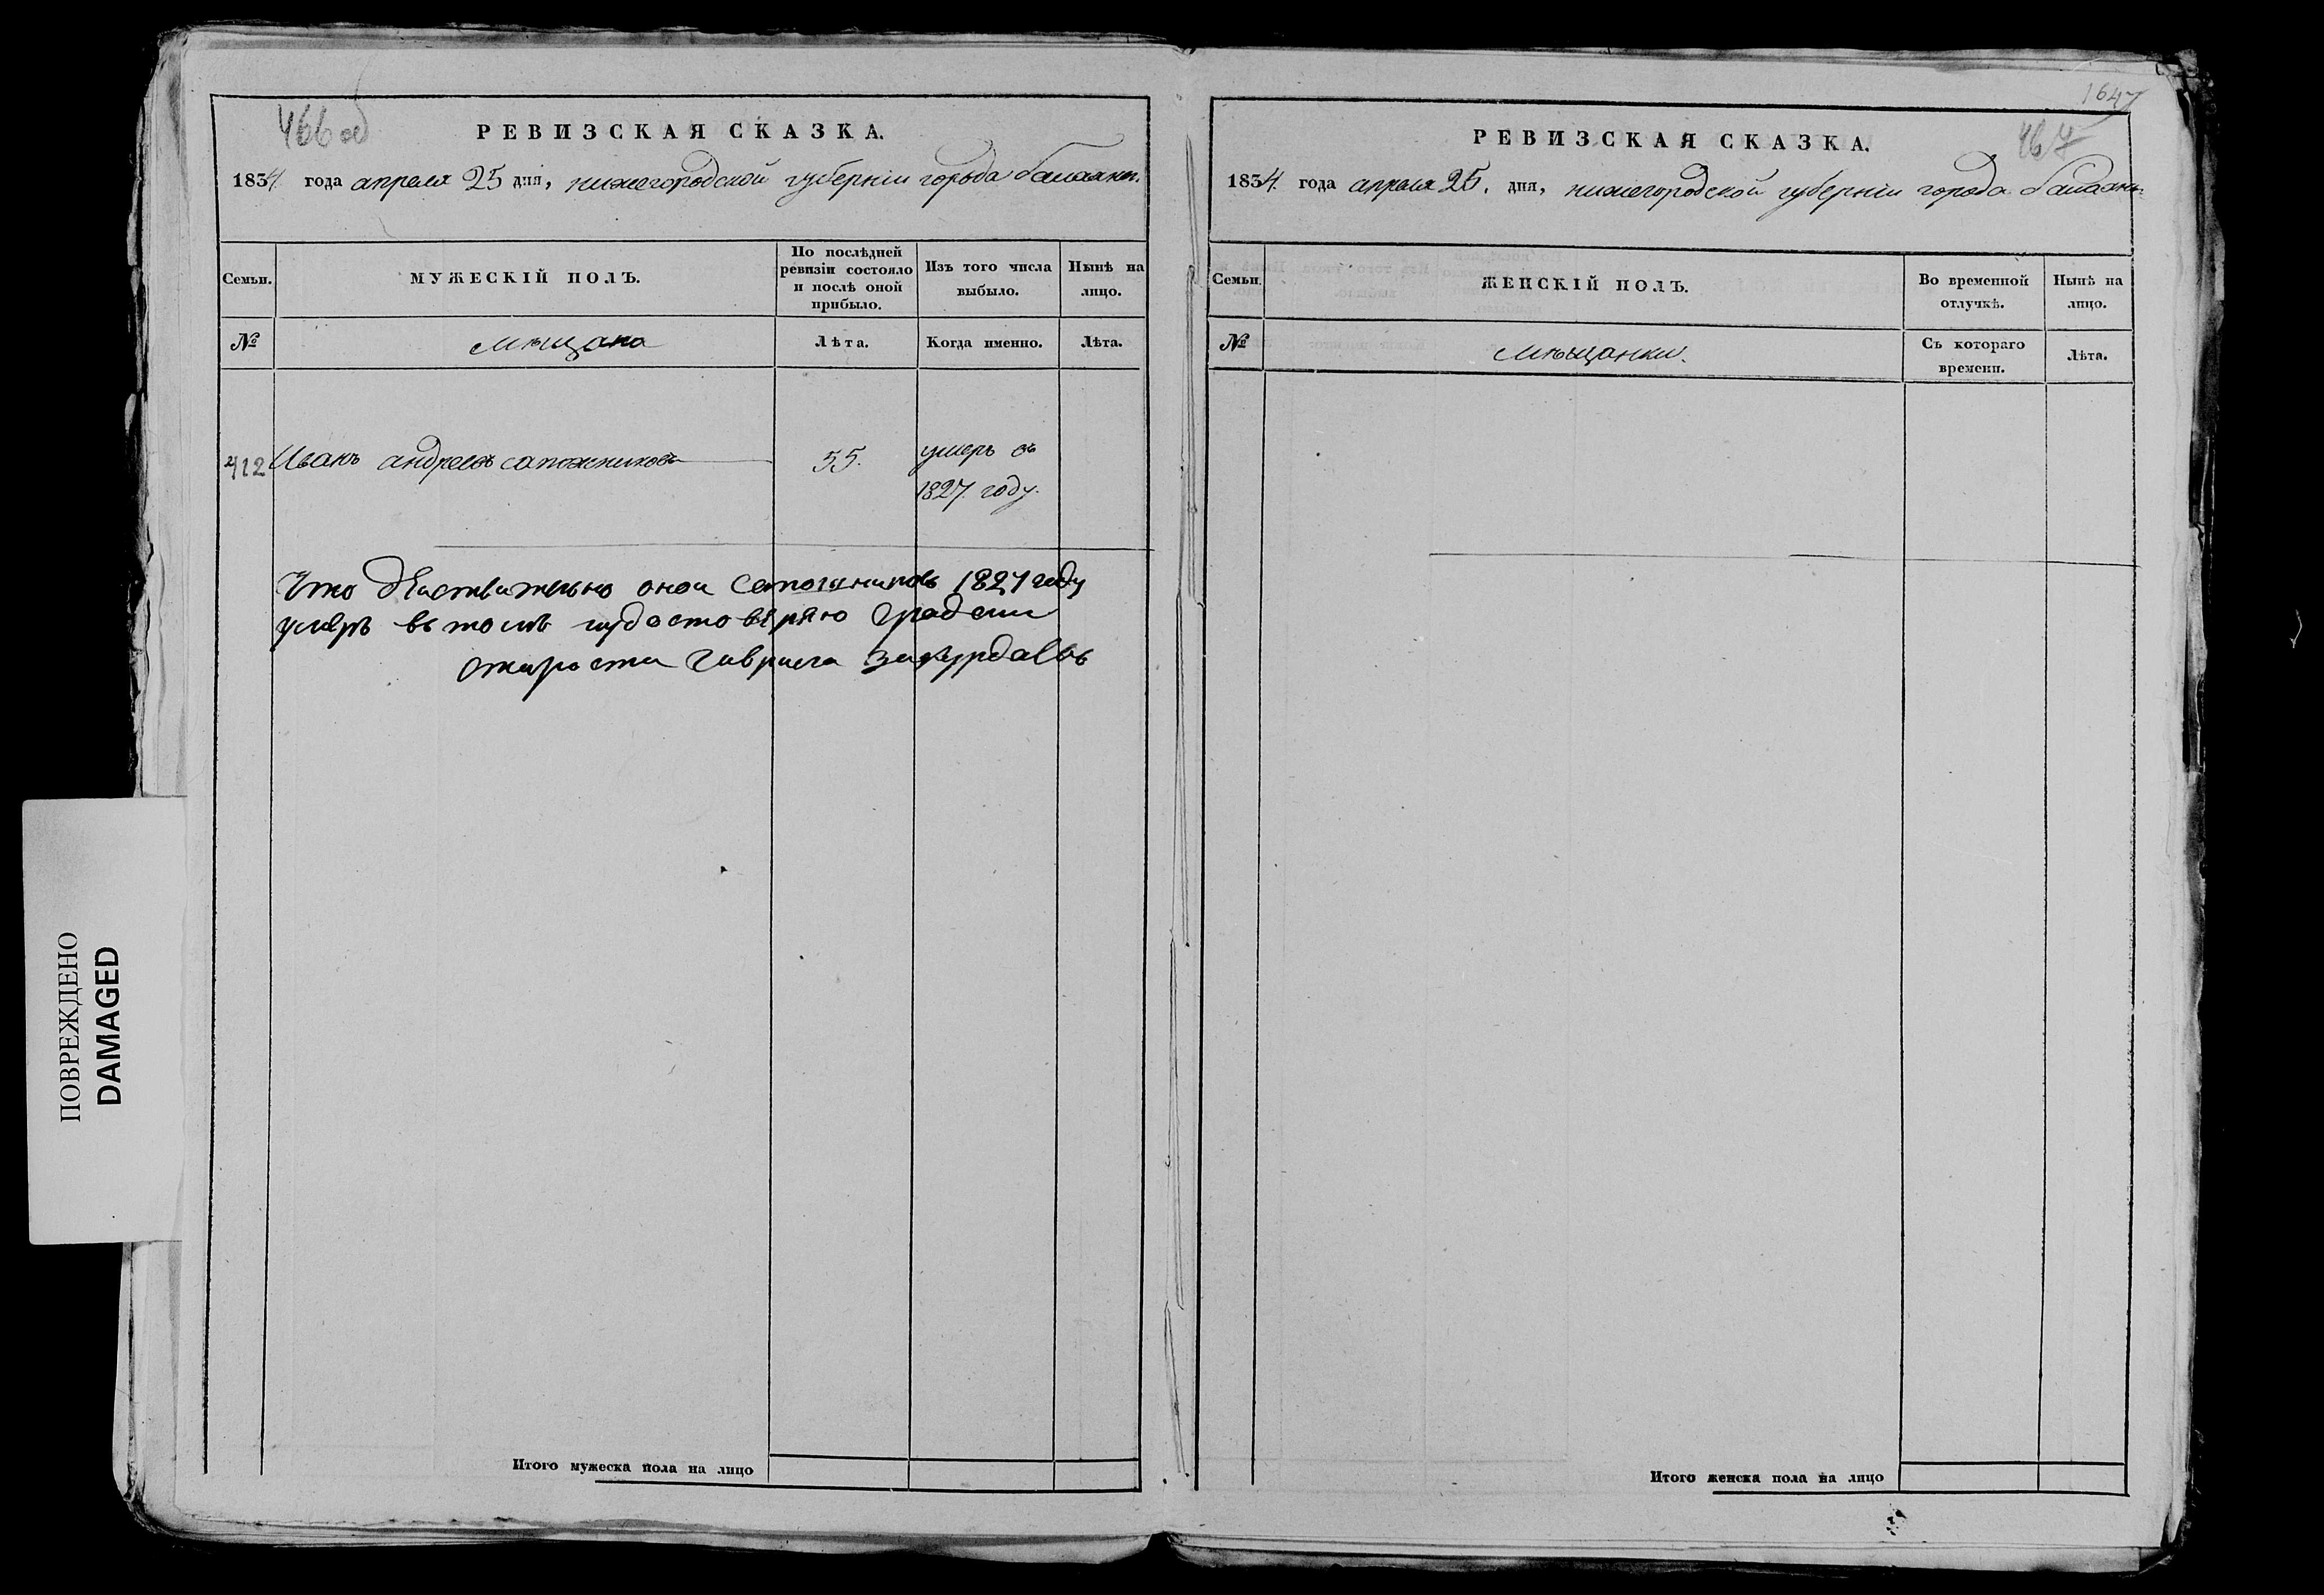 466 об
РЕВИЗСКАЯ СКАЗКА.
1834 года апреля 25 дня, нижегородской губерніи города балахны.
Семьи.
МУЖЕСКІЙ ПОЛЪ.
По послѣдней ревизіи состояло и послѣ оной прибыло.
Изъ того числа выбыло.
Нынѣ на лицо.
№
мѣщана
Лѣта.
Когда именно.
Лѣта.
412 Иванъ андреевъ сапожниковъ 55. умеръ въ
1827. году.
Что действительно оной Сапожниковъ 1827 году
умеръ въ томъ удостоверяю Градской
Староста Гаврила Закурдаевъ
Итого мужеска пола на лицо
1647
467
РЕВИЗСКАЯ СКАЗКА.
1834. года апреля 25. дня, нижегородской губерніи города балахны.
Семьи.
ЖЕНСКІЙ ПОЛЪ.
Во временной отлучкѣ.
Нынѣ на лицо.
№
мѣщанки.
Съ котораго времени.
Лѣта.
Итого женска пола на лицо
ПОВРЕЖДЕНО
DAMAGED